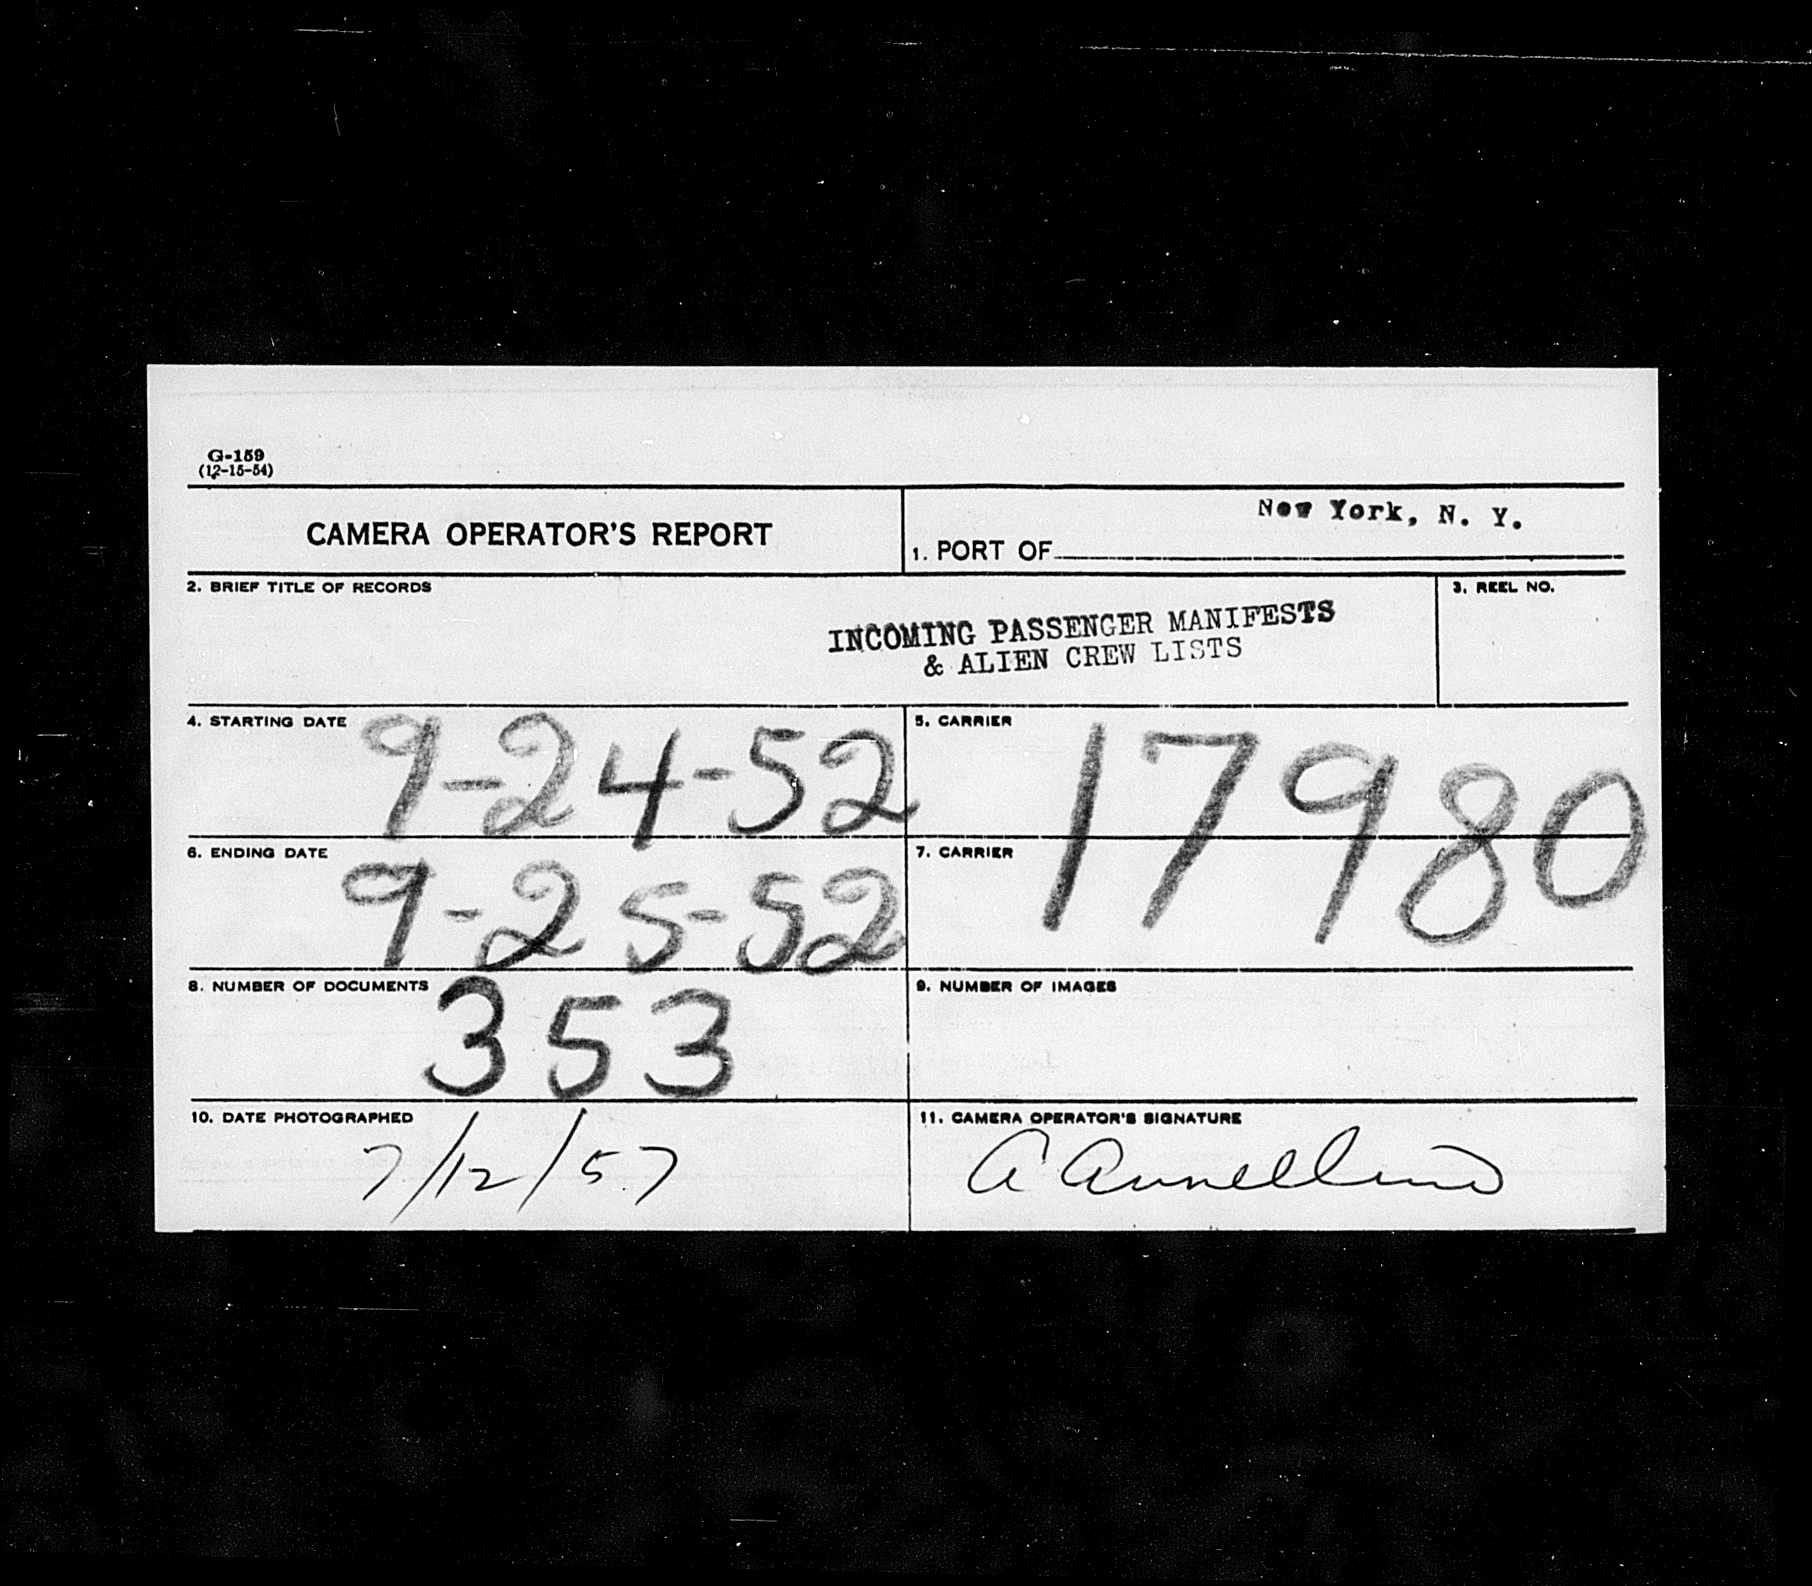 G-159
(12-15-54)
CAMERA OPERATOR'S REPORT
New York, N. Y.
1. PORT OF
2. BRIEF TITLE OF RECORDS
INCOMING PASSENGER MANIFESTS
& ALIEN CREW LISTS
3. REEL NO.
4. STARTING DATE
9-24-52
5. CARRIER
17980
6. ENDING DATE
9-25-52
7. CARRIER
8. NUMBER OF DOCUMENTS
353
9. NUMBER OF IMAGES
10. DATE PHOTOGRAPHED
7/12/57
11. CAMERA OPERATOR'S SIGNATURE
A